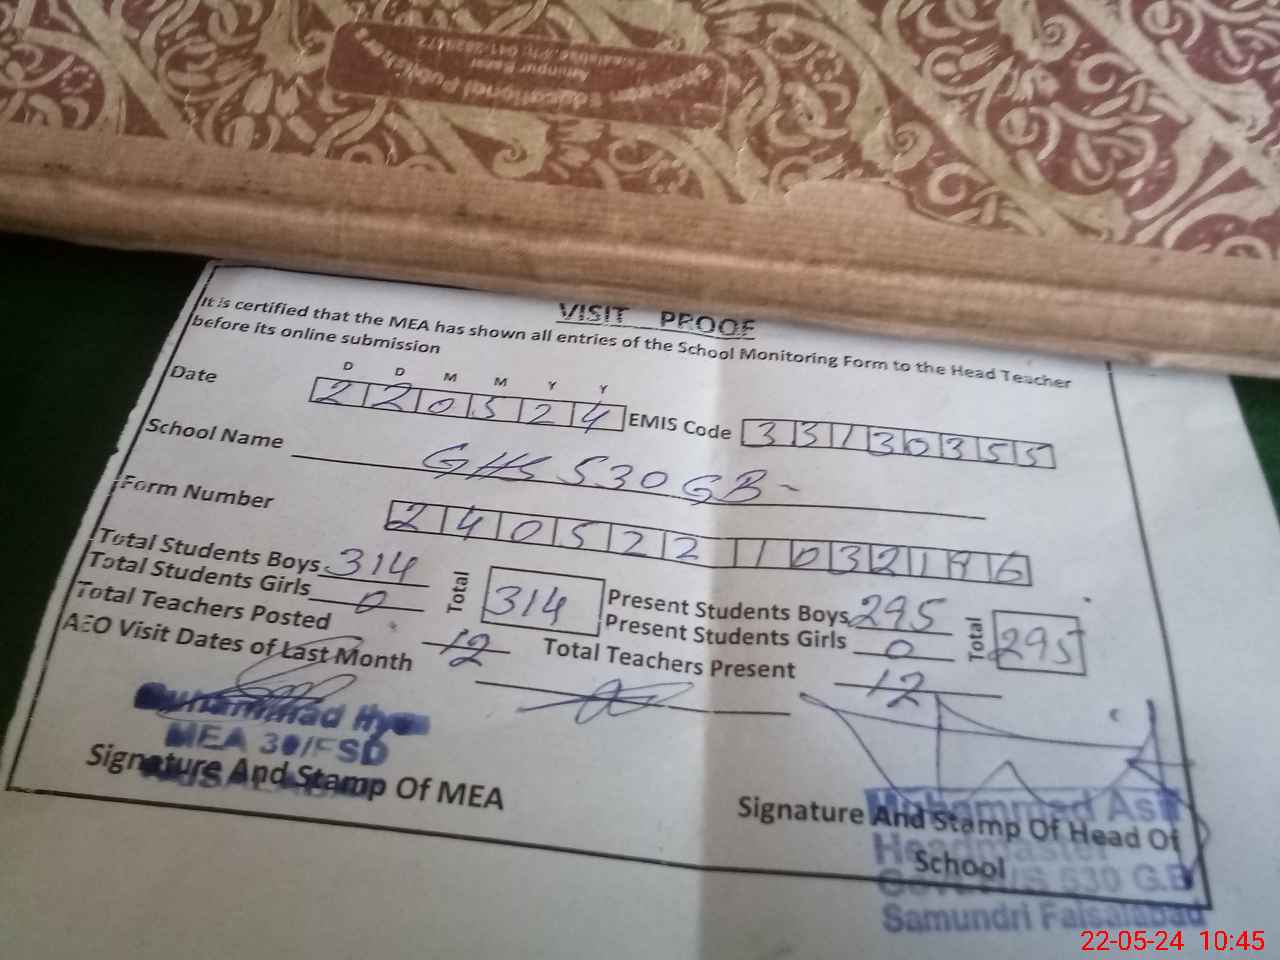 Educational
VISIT PROOF
It is certified that the MEA has shown all entries of the School Monitoring Form to the Head Teacher
before its online submission
D D M M Y Y
Date 2 2 0 5 2 4 EMIS Code 3 3 1 3 0 3 5 5
School Name GHS 530 GB -
Form Number 2 4 0 5 2 2 1 0 3 2 1 9 6
Total Students Boys 314 Total 314 Present Students Boys 295 Total 295
Total Students Girls 0 Present Students Girls 0
Total Teachers Posted 12 Total Teachers Present 12
AEO Visit Dates of Last Month
Muhammad
MEA 30/FSD
Signature And Stamp Of MEA
Signature And Stamp Of Head Of
School
Muhammad Asif
Headmaster
530 G.B
Samundri Faisalabad
22-05-24 10:45